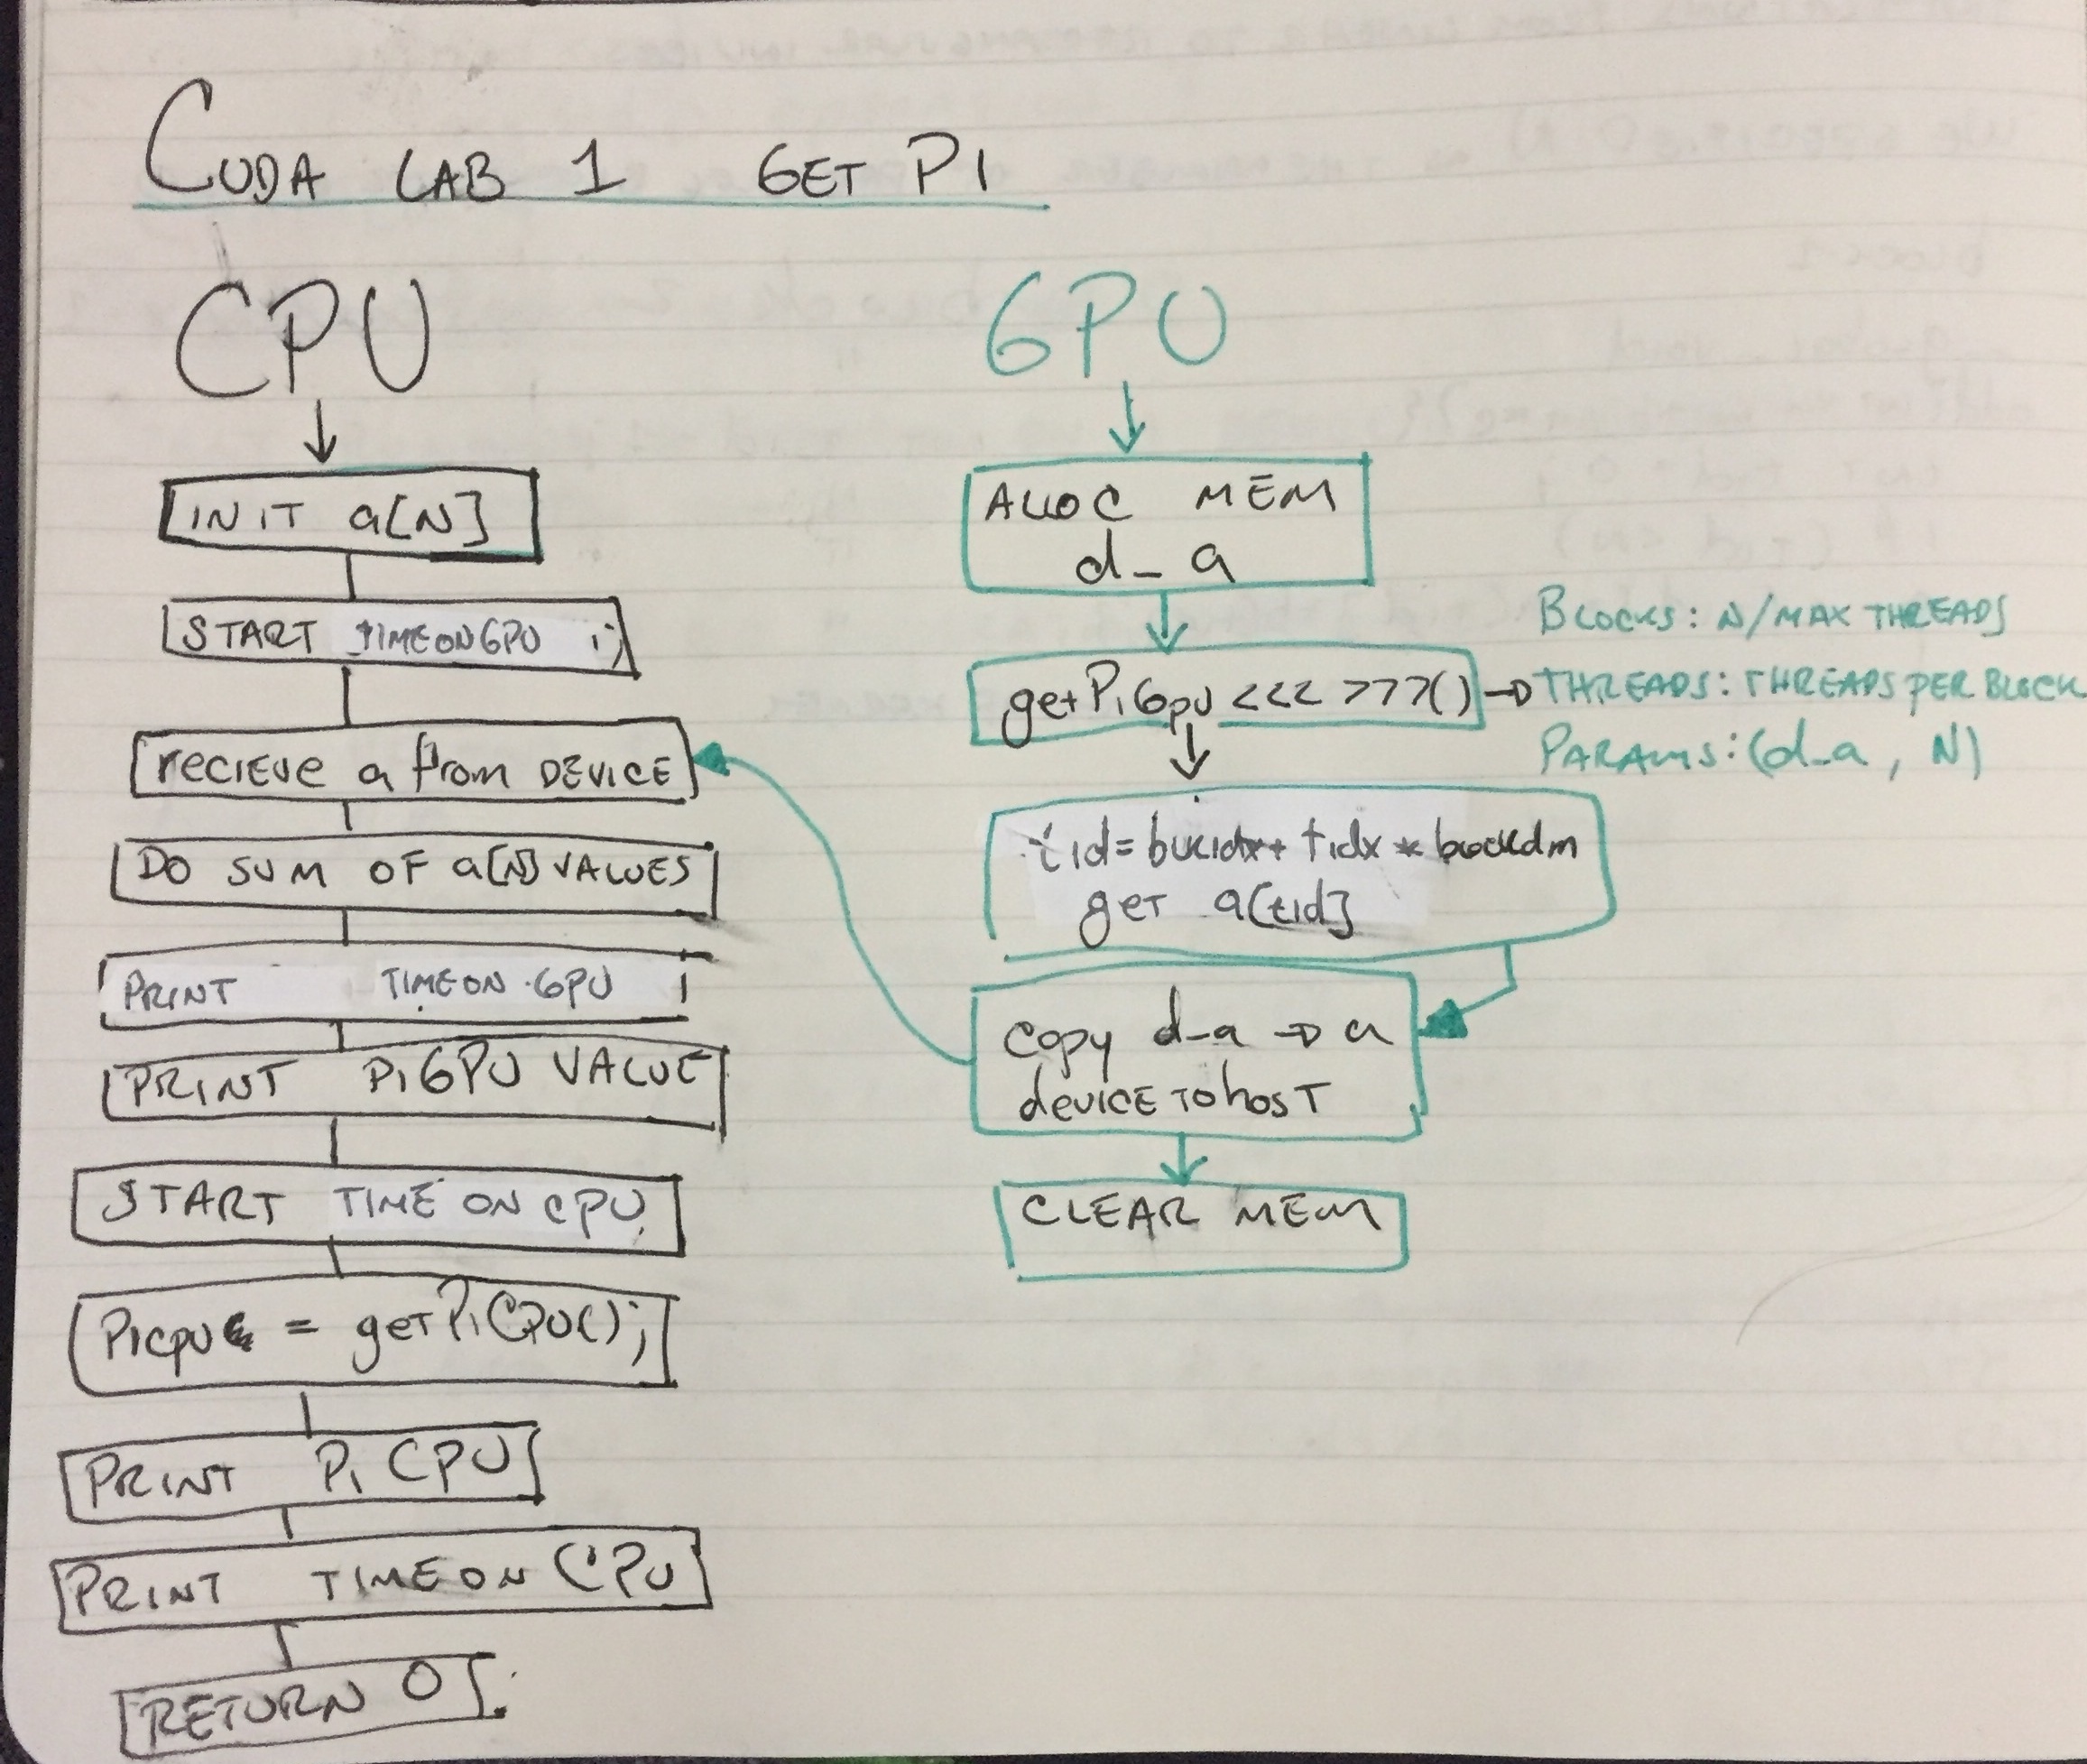 CUDA LAB 1 GET PI
CPU
INIT a[N]
START TIME ON GPU ;)
recieve a from DEVICE
DO SUM OF a[N] VALUES
PRINT TIME ON GPU
PRINT Pi GPU VALUE
START TIME ON CPU
Picpu = getPiCPU();
PRINT Pi CPU
PRINT TIME ON CPU
RETURN 0
GPU
ALLOC MEM
d_a
getPiGpu <<< >>>()
BLOCKS: N/MAX THREADS
THREADS: THREADS PER BLOCK
PARAMS: (d_a, N)
tid= + tidx *
get a[tid]
copy d_a → a
device to host
CLEAR MEM